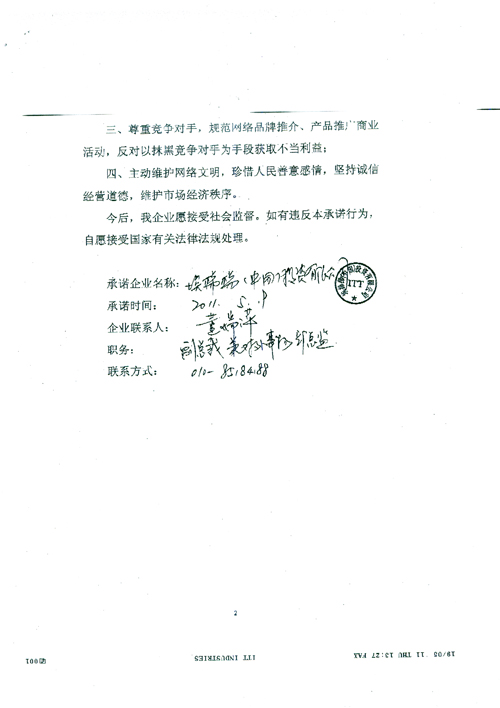 三、尊重竞争对手，规范网络品牌推介、产品推广商业
活动，反对以抹黑竞争对手为手段获取不当利益；
四、主动维护网络文明，珍惜人民善意感情，坚持诚信
经营道德，维护市场经济秩序。
今后，我企业愿接受社会监督。如有违反本承诺行为，
自愿接受国家有关法律法规处理。
承诺企业名称：埃梯梯（中国）投资有限公司
ITT
承诺时间：2011. 5. 9
企业联系人：
职务：副总裁兼对外事务部总监
联系方式：010-85184188
2
19/05 '11 THU 13:27 FAX
ITT INDUSTRIES
001